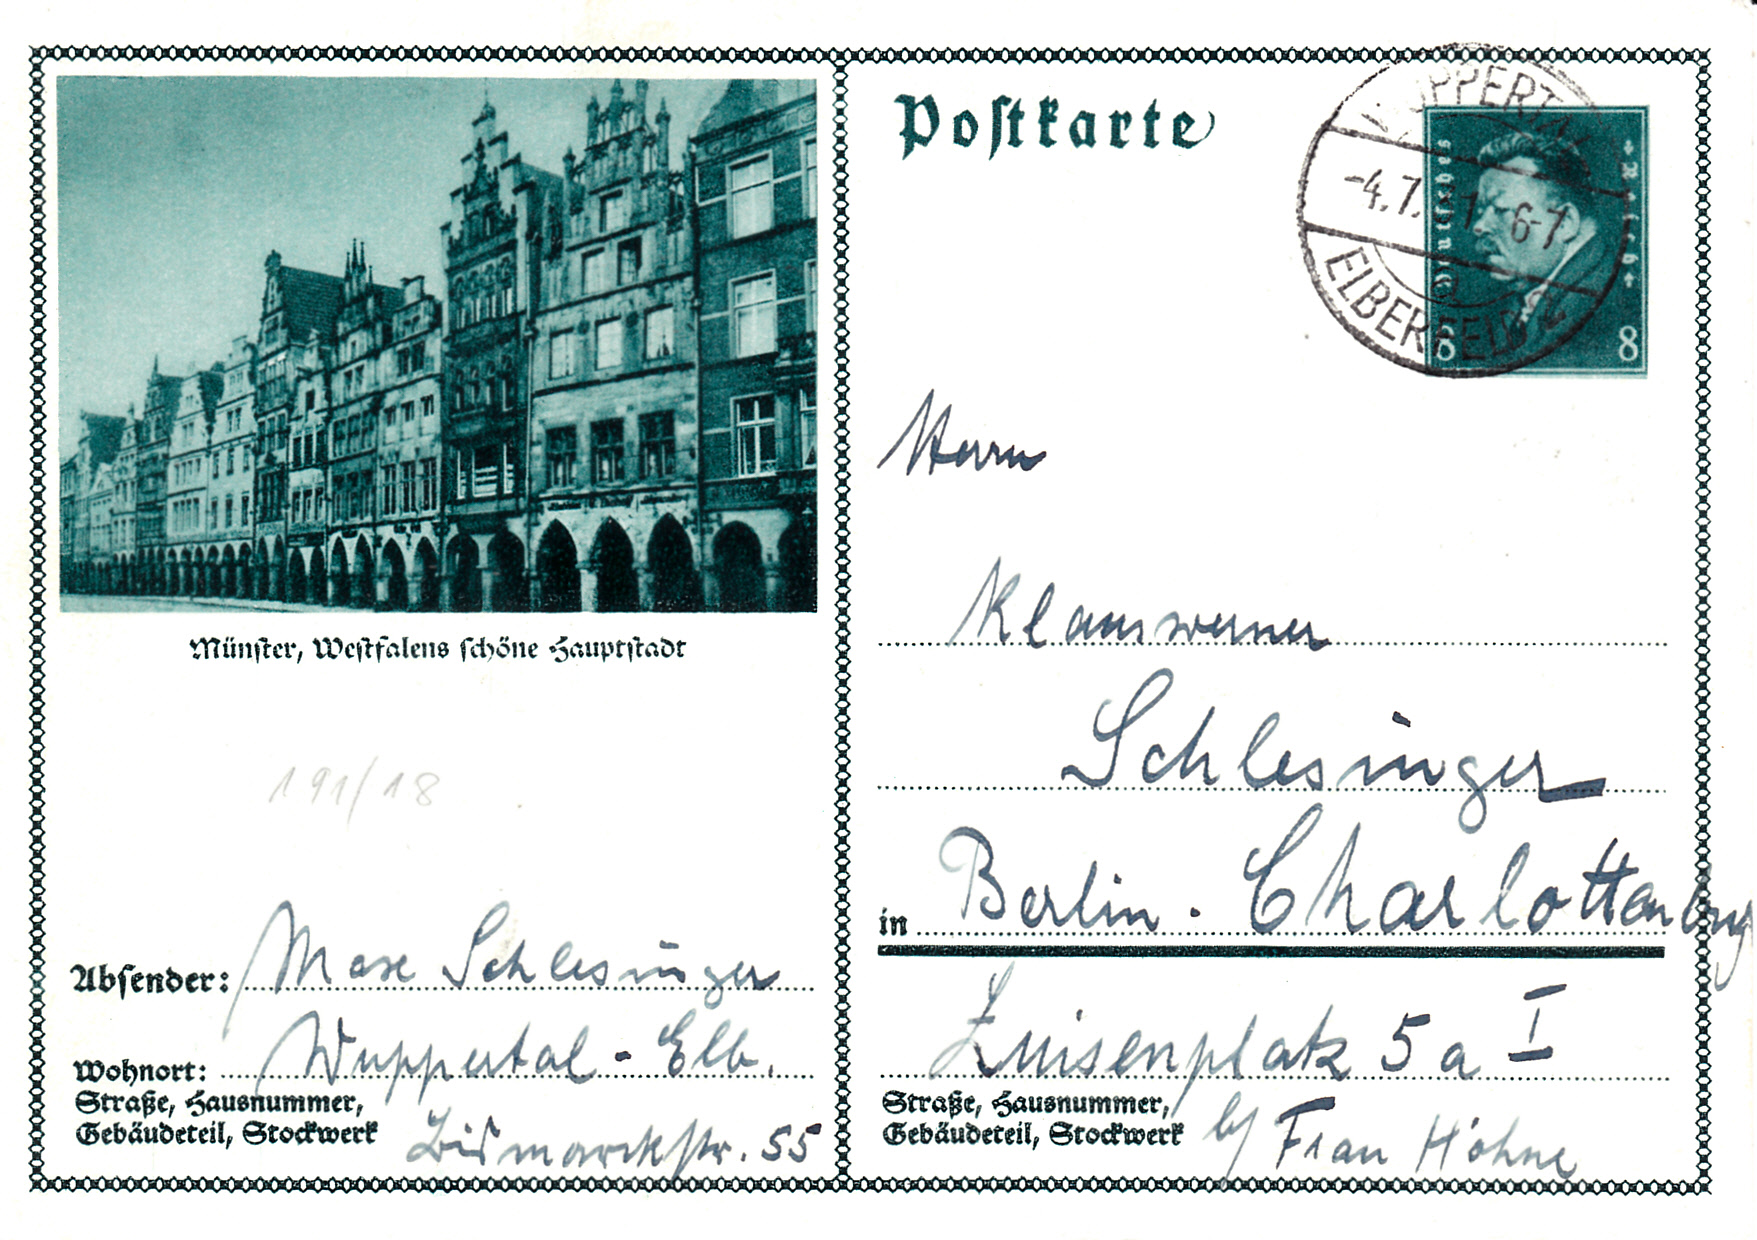 Münster, Westfalens schöne Hauptstadt
191/18
Absender: Max Schlesinger
Wohnort: Wuppertal - Elb.
Straße, Hausnummer,
Gebäudeteil, Stockwerk
Bismarckstr. 55
Postkarte
WUPPERTAL
-4.7.31. 6-7
ELBERFELD 2
Deutsches
Reich
8 8
Herrn
Klauswerner
Schlesinger
in Berlin - Charlottenburg
Luisenplatz 5a I
Straße, Hausnummer,
Gebäudeteil, Stockwerk
b/ Frau Höhne